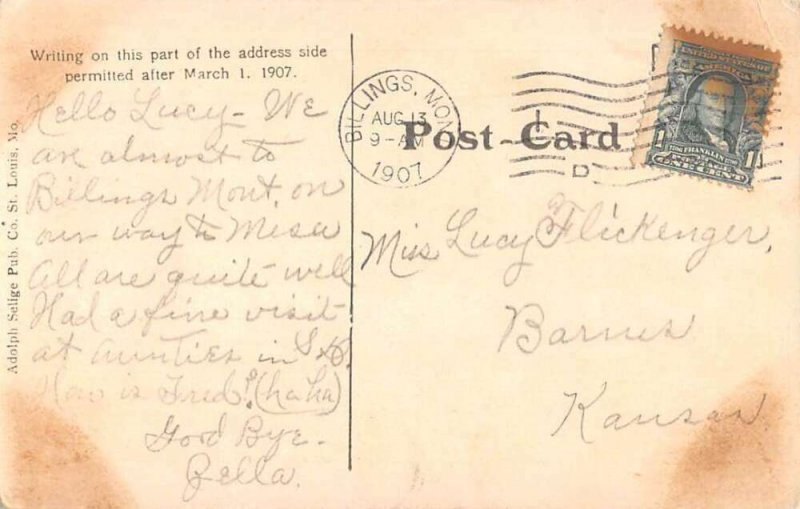 Writing on this part of the address side
permitted after March 1, 1907.
Hello Lucy - We
are almost to
Billings Mont. on
our way to Mesa
All are quite well
Had a fine visit
at Aunties in S.D.
How is Fred? (ha ha)
Good Bye -
Zella.
Adolph Selige Pub. Co. St. Louis, Mo.
BILLINGS, MON
AUG 13
9-AM
1907
Post-Card
D
UNITED STATES OF
AMERICA
1 FRANKLIN 1
ONE CENT
Miss Lucy Flickenger,
Barnes
Kansas.